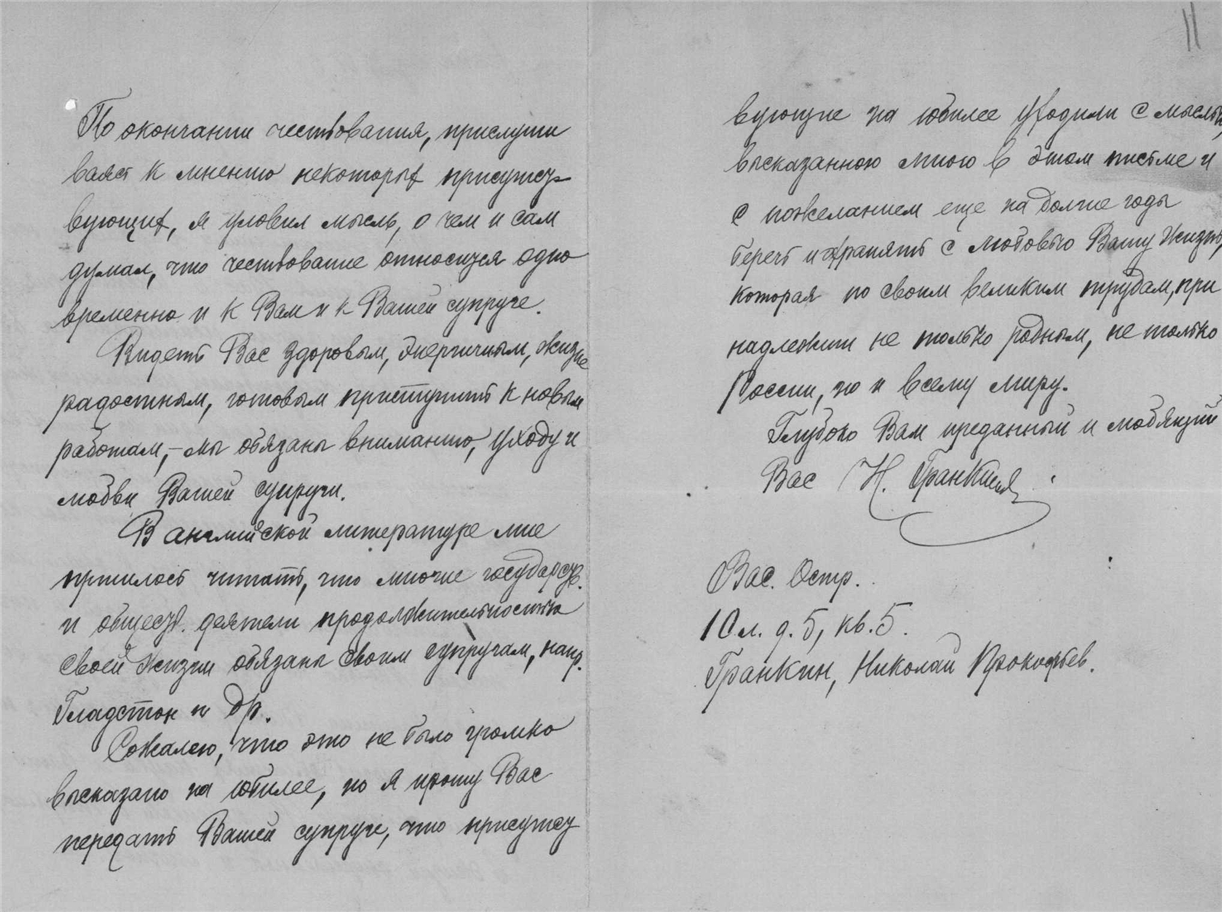 По окончании чествования, прислуши
ваясь к мнению некоторых присутст-
вующих, я уловил мысль, о чем и сам
думал, что чествование относится одно
временно и к Вам и к Вашей супруге.
Видеть Вас здоровым, энергичным, жизне
радостным, готовым приступить к новым
работам, – мы обязаны вниманию, уходу и
любви Вашей супруги.
В английской литературе мне
пришлось читать, что многие государств.
и обществ. деятели продолжительностью
своей жизни обязаны своим супругам, напр.
Гладстон и др.
Сожалею, что это не было громко
высказано на юбилее, но я прошу Вас
передать Вашей супруге, что присутст
11
вующие на юбилее уходили с мыслью,
высказанною мною в этом письме и
с пожеланием еще на долгие годы
беречь и хранить с любовью Вашу жизнь,
которая по своим великим трудам, при
надлежит не только родным, не только
России, но и всему миру.
Глубоко Вам преданный и любящий
Вас Н. Гранкин
Вас. Остр.
10 л. д. 5, кв. 5.
Гранкин, Николай Прокофьев.